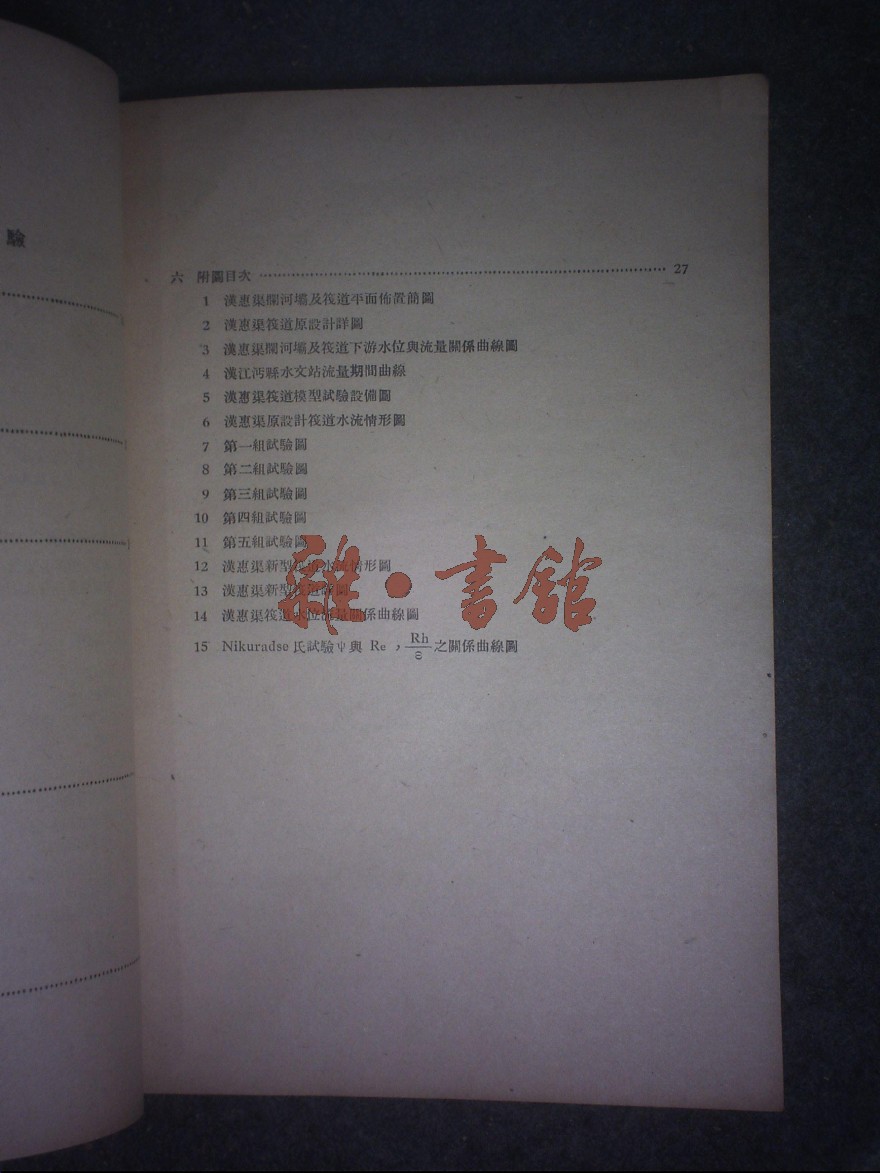 驗
六 附圖目次 27
1 漢惠渠攔河壩及筏道平面佈置簡圖
2 漢惠渠筏道原設計詳圖
3 漢惠渠攔河壩及筏道下游水位與流量關係曲線圖
4 漢江沔縣水文站流量期間曲線
5 漢惠渠筏道模型試驗設備圖
6 漢惠渠原設計筏道水流情形圖
7 第一組試驗圖
8 第二組試驗圖
9 第三組試驗圖
10 第四組試驗圖
11 第五組試驗圖
12 漢惠渠新型筏道水流情形圖
13 漢惠渠新型筏道詳圖
14 漢惠渠筏道水位流量關係曲線圖
15 Nikuradse 氏試驗ψ與 Re，Rh/e 之關係曲線圖
雜·書館